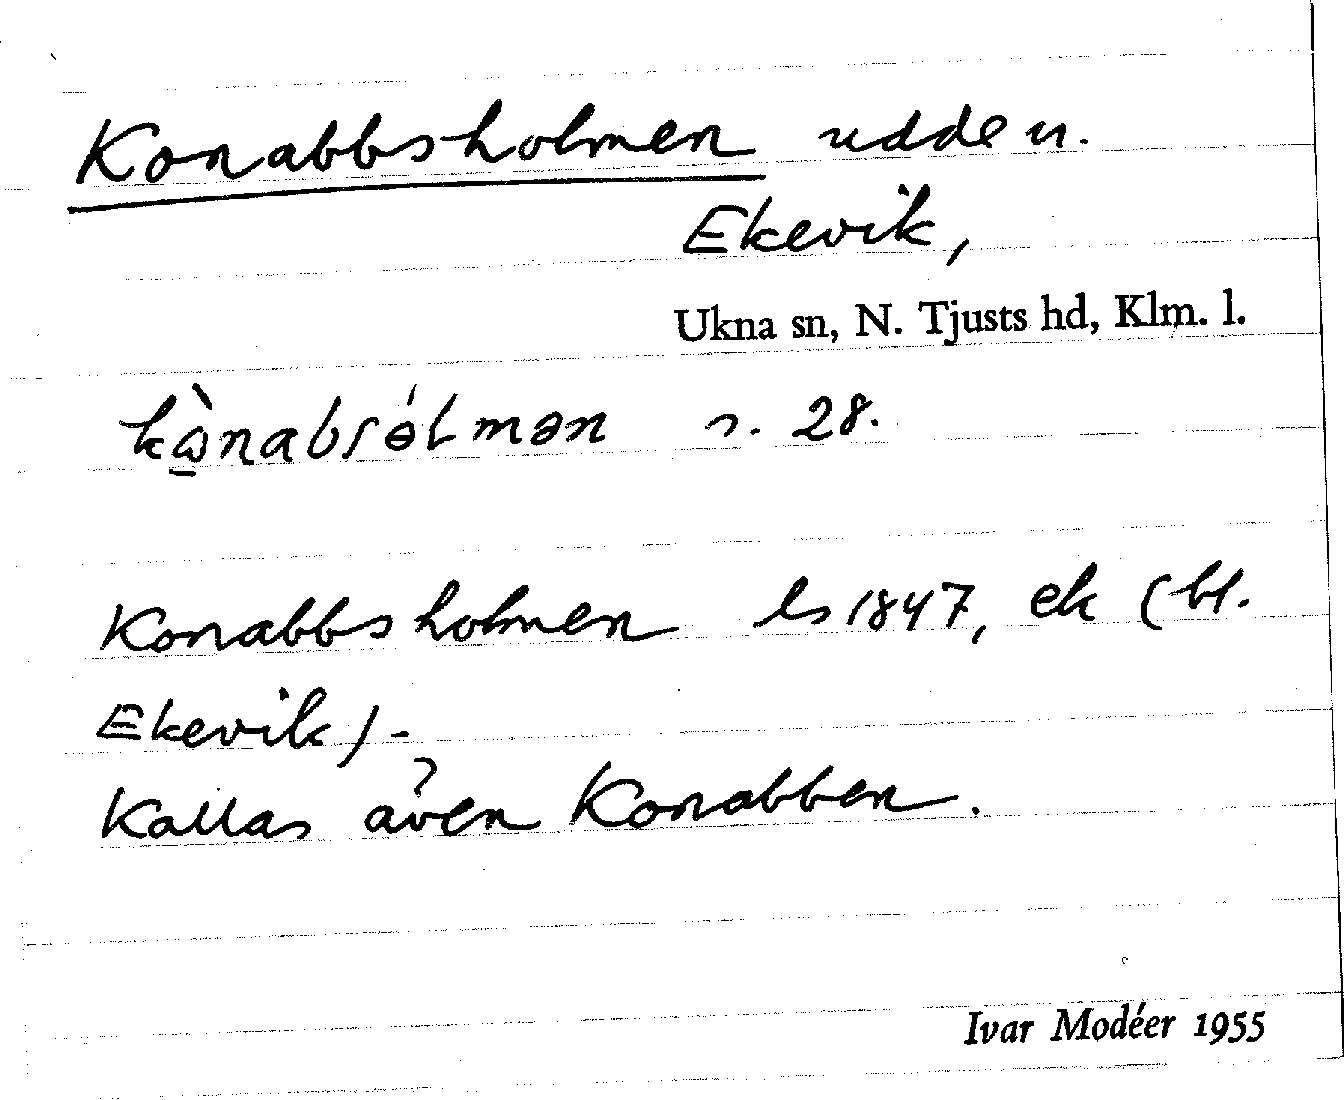 Konabbsholmen udden.
Ekevik,
Ukna sn, N. Tjusts hd, Klm. l.
s. 28.
Konabbsholmen ls 1847, ek (bl.
Ekevik) -
Kallas även Konabben.
Ivar Modéer 1955